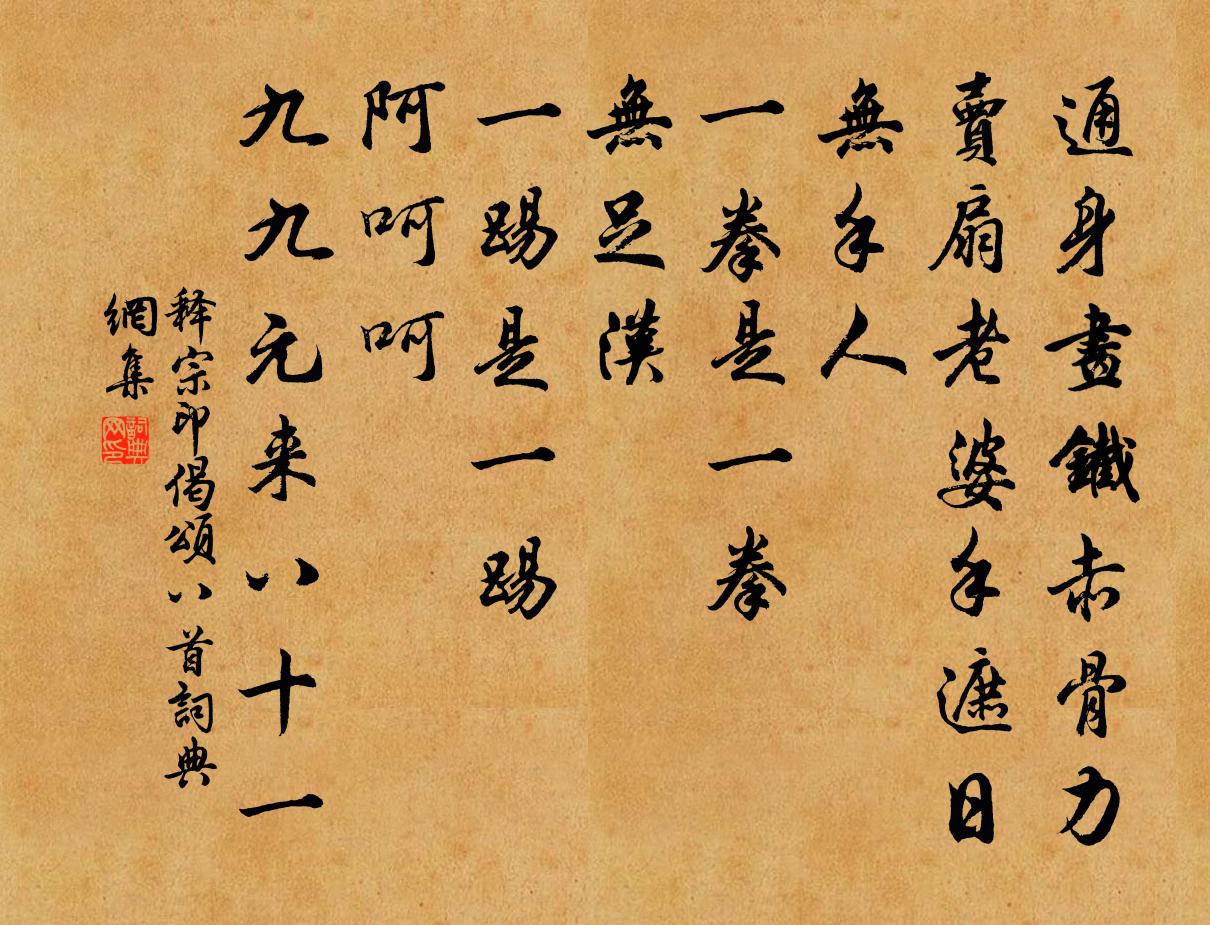 通身畫鐵赤骨力
賣扇老婆手遮日
無手人
一拳是一拳
無足漢
一踢是一踢
阿呵呵
九九元来八十一
释宗印偈頌八首詞典
網集
詞典网印